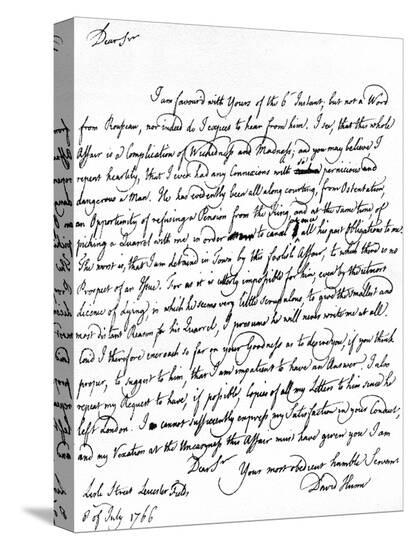 Dear Sir
I am favoured with Yours of the 6th Instant, but not a Word
from Rousseau, nor indeed do I expect to hear from him. I see, that this whole
Affair is a Complication of Wickedness and Madness; and you may believe I
repent heartily, that I ever had any Connexions with so pernicious and
dangerous a Man. He has evidently been all along courting, from Ostentation,
an Opportunity of refusing a Pension from the King, and at the same time of
picking a Quarrel with me, in order to cancel at once all his past Obligations to me.
The worst is, that I am detained in Town by this foolish Affair, to which there is no
Prospect of an Issue. For as it is utterly impossible for him, even by the utmost
Licence of Lying, in which he seems very little scrupulous, to give the smallest and
most distant Reason for his Quarrel, I presume he will never write me at all.
Coud I therefore encroach so far on your Goodness as to desire you, if you think
proper, to suggest to him, that I am impatient to have an Answer. I also
repeat my Request to have, if possible, Copies of all my Letters to him since he
left London. I cannot sufficiently express my Satisfaction in your Conduct,
and my Vexation at the Uneasyness this Affair must have given you I am
Dear Sir
Your most obedient humble Servant
David Hume
Lisle Street Leicester Fields
8 of July 1766